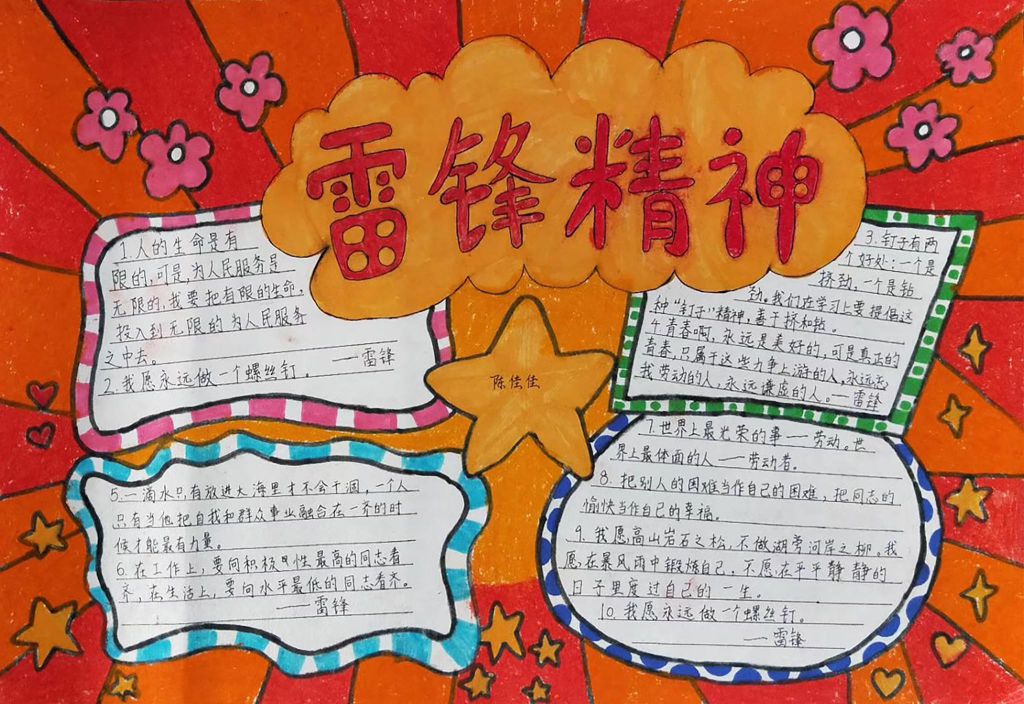 雷锋精神
1.人的生命是有
限的,可是,为人民服务是
无限的,我要把有限的生命,
投入到无限的为人民服务
之中去。
——雷锋
2.我愿永远做一个螺丝钉。
3.钉子有两
个好处:一个是
挤劲,一个是钻
劲。我们在学习上要提倡这
种“钉子”精神,善于挤和钻。
4青春啊,永远是美好的,可是真正的
青春,只属于这些力争上游的人,永远忘
我劳动的人,永远谦虚的人。——雷锋
陈佳佳
5.一滴水只有放进大海里才不会干涸,一个人
只有当他把自我和群众事业融合在一齐的时
候才能最有力量。
6.在工作上,要向积极性最高的同志看
齐,在生活上,要向水平最低的同志看齐。
——雷锋
7.世界上最光荣的事——劳动。世
界上最体面的人——劳动者。
8.把别人的困难当作自己的困难,把同志的
愉快当作自己的幸福。
9.我愿高山岩石之松,不做湖旁河岸之柳。我
愿在暴风雨中锻炼自己,不愿在平平静静的
日子里度过自己的一生。
10.我愿永远做一个螺丝钉。
——雷锋